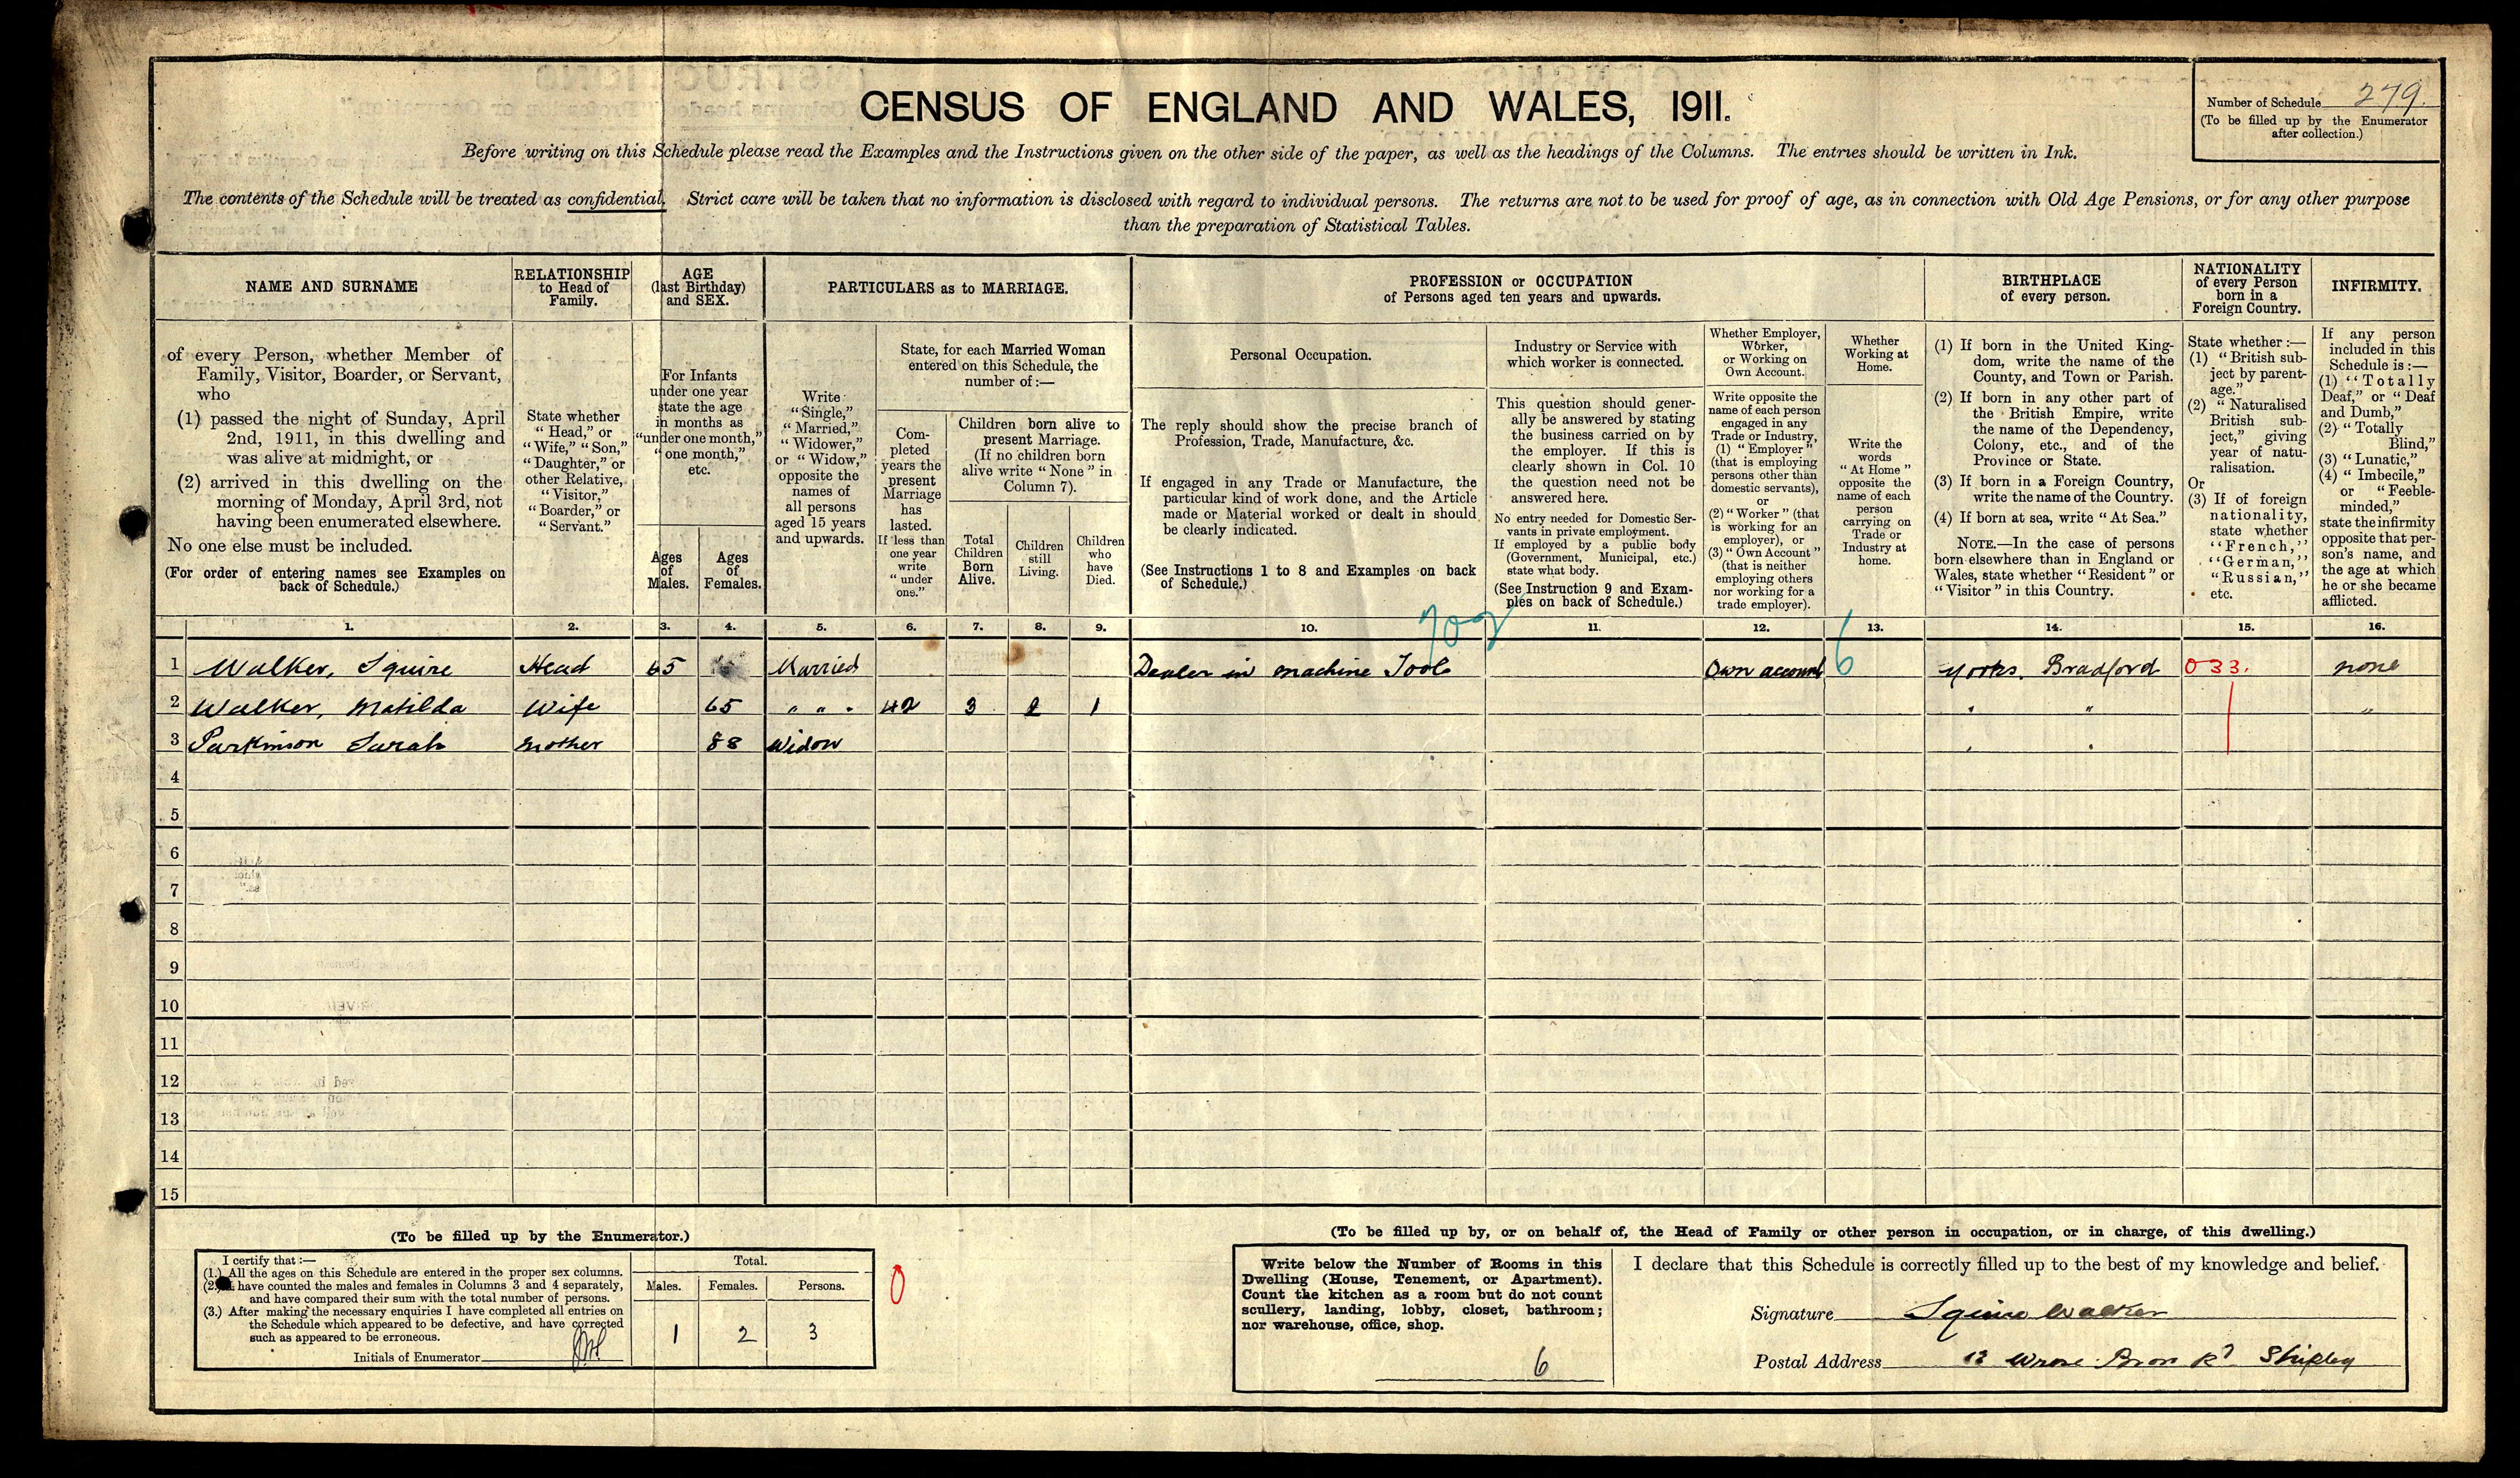 CENSUS OF ENGLAND AND WALES, 1911.
Number of Schedule 279.
(To be filled up by the Enumerator
after collection.)
Before writing on this Schedule please read the Examples and the Instructions given on the other side of the paper, as well as the headings of the Columns. The entries should be written in Ink.
The contents of the Schedule will be treated as confidential. Strict care will be taken that no information is disclosed with regard to individual persons. The returns are not to be used for proof of age, as in connection with Old Age Pensions, or for any other purpose
than the preparation of Statistical Tables.
NAME AND SURNAME
RELATIONSHIP
to Head of
Family.
AGE
(last Birthday)
and SEX.
PARTICULARS as to MARRIAGE.
PROFESSION or OCCUPATION
of Persons aged ten years and upwards.
BIRTHPLACE
of every person.
NATIONALITY
of every Person
born in a
Foreign Country.
INFIRMITY.
of every Person, whether Member of
Family, Visitor, Boarder, or Servant,
who
(1) passed the night of Sunday, April
2nd, 1911, in this dwelling and
was alive at midnight, or
(2) arrived in this dwelling on the
morning of Monday, April 3rd, not
having been enumerated elsewhere.
No one else must be included.
(For order of entering names see Examples on
back of Schedule.)
State whether
"Head," or
"Wife," "Son,"
"Daughter," or
other Relative,
"Visitor,"
"Boarder," or
"Servant."
For Infants
under one year
state the age
in months as
"under one month,"
"one month,"
etc.
Ages
of
Males.
Ages
of
Females.
Write
"Single,"
"Married,"
"Widower,"
or "Widow,"
opposite the
names of
all persons
aged 15 years
and upwards.
State, for each Married Woman
entered on this Schedule, the
number of:—
Com-
pleted
years the
present
Marriage
has
lasted.
If less than
one year
write
"under
one."
Children born alive to
present Marriage.
(If no children born
alive write "None" in
Column 7).
Total
Children
Born
Alive.
Children
still
Living.
Children
who
have
Died.
Personal Occupation.
The reply should show the precise branch of
Profession, Trade, Manufacture, &c.
If engaged in any Trade or Manufacture, the
particular kind of work done, and the Article
made or Material worked or dealt in should
be clearly indicated.
(See Instructions 1 to 8 and Examples on back
of Schedule.)
Industry or Service with
which worker is connected.
This question should gener-
ally be answered by stating
the business carried on by
the employer. If this is
clearly shown in Col. 10
the question need not be
answered here.
No entry needed for Domestic Ser-
vants in private employment.
If employed by a public body
(Government, Municipal, etc.)
state what body.
(See Instruction 9 and Exam-
ples on back of Schedule.)
Whether Employer,
Worker,
or Working on
Own Account.
Write opposite the
name of each person
engaged in any
Trade or Industry,
(1) "Employer"
(that is employing
persons other than
domestic servants),
or
(2) "Worker" (that
is working for an
employer), or
(3) "Own Account"
(that is neither
employing others
nor working for a
trade employer).
Whether
Working at
Home.
Write the
words
"At Home"
opposite the
name of each
person
carrying on
Trade or
Industry at
home.
(1) If born in the United King-
dom, write the name of the
County, and Town or Parish.
(2) If born in any other part of
the British Empire, write
the name of the Dependency,
Colony, etc., and of the
Province or State.
(3) If born in a Foreign Country,
write the name of the Country.
(4) If born at sea, write "At Sea."
NOTE.—In the case of persons
born elsewhere than in England or
Wales, state whether "Resident" or
"Visitor" in this Country.
State whether:—
(1) "British sub-
ject by parent-
age."
(2) "Naturalised
British sub-
ject," giving
year of natu-
ralisation.
Or
(3) If of foreign
nationality,
state whether
"French,"
"German,"
"Russian,"
etc.
If any person
included in this
Schedule is:—
(1) "Totally
Deaf," or "Deaf
and Dumb,"
(2) "Totally
Blind,"
(3) "Lunatic,"
(4) "Imbecile,"
or "Feeble-
minded,"
state the infirmity
opposite that per-
son's name, and
the age at which
he or she became
afflicted.
1. 2. 3. 4. 5. 6. 7. 8. 9. 10. 11. 12. 13. 14. 15. 16.
702
1 Walker, Squire Head 65 Married Dealer in machine Tools Own account 6 Yorks. Bradford 033. none
2 Walker, Matilda Wife 65 " " " 42 3 2 1 " " "
3 Parkinson Sarah Mother 88 Widow " "
4
5
6
7
8
9
10
11
12
13
14
15
(To be filled up by the Enumerator.)
I certify that:—
(1.) All the ages on this Schedule are entered in the proper sex columns.
(2.) I have counted the males and females in Columns 3 and 4 separately,
and have compared their sum with the total number of persons.
(3.) After making the necessary enquiries I have completed all entries on
the Schedule which appeared to be defective, and have corrected
such as appeared to be erroneous.
Initials of Enumerator
Total.
Males. Females. Persons.
1 2 3
0
(To be filled up by, or on behalf of, the Head of Family or other person in occupation, or in charge, of this dwelling.)
Write below the Number of Rooms in this
Dwelling (House, Tenement, or Apartment).
Count the kitchen as a room but do not count
scullery, landing, lobby, closet, bathroom;
nor warehouse, office, shop.
6
I declare that this Schedule is correctly filled up to the best of my knowledge and belief.
Signature Squire Walker
Postal Address 12 Wrose Brow Rd Shipley